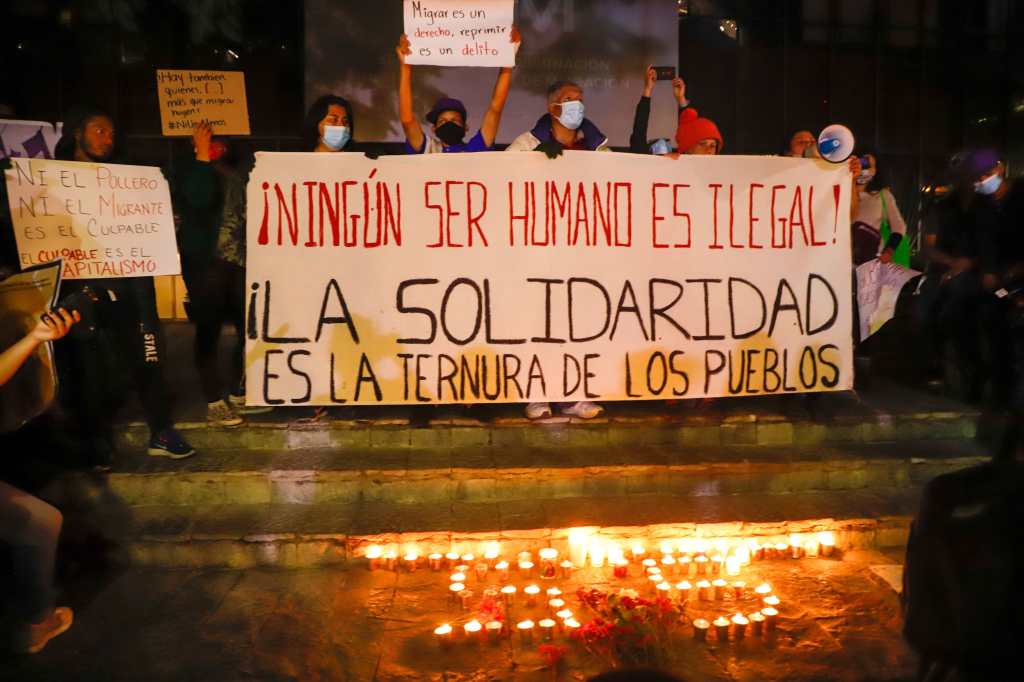 Migrar es un
derecho, reprimir
es un delito
¡Hay también
quienes, [...]
más que migrar
huyen!
NI EL POLLERO
NI EL MIGRANTE
ES EL CULPABLE
EL CULPABLE ES EL
CAPITALISMO
¡NINGÚN SER HUMANO ES ILEGAL!
¡LA SOLIDARIDAD
ES LA TERNURA DE LOS PUEBLOS
STALE